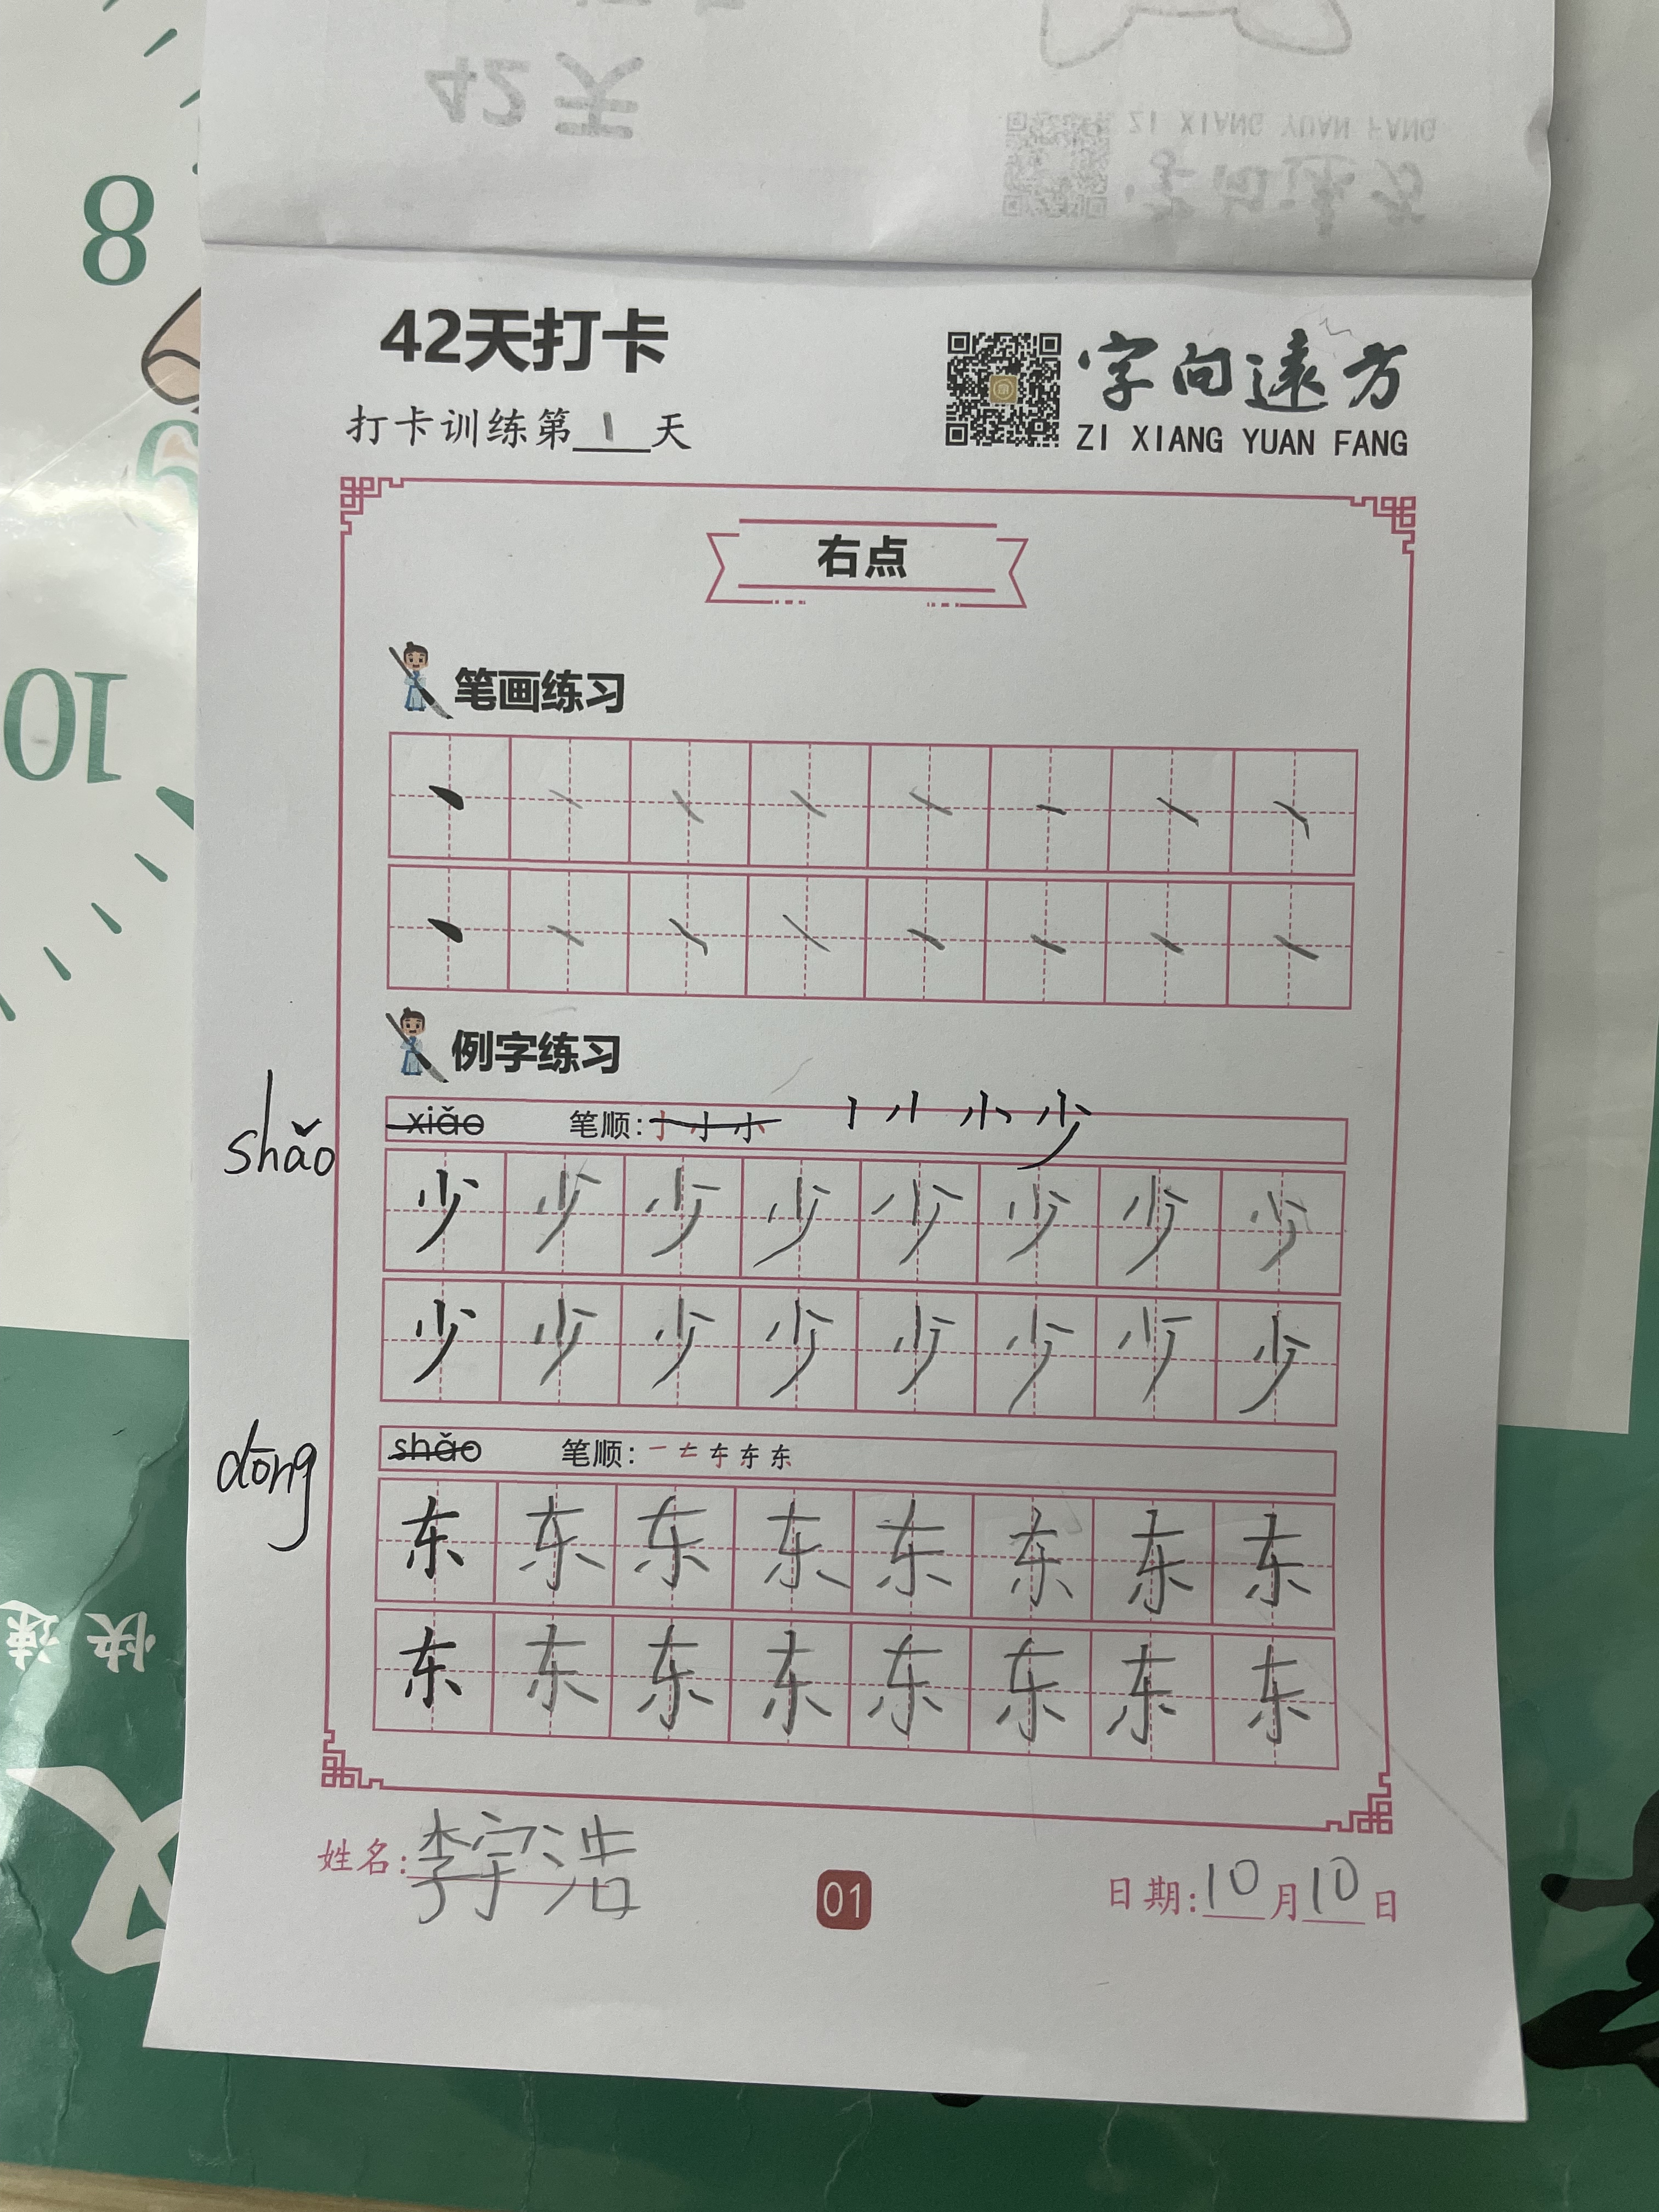 42天
ZI XIANG YUAN FANG
字向遠方
8
9
10
42天打卡
字向遠方
打卡训练第 1 天
ZI XIANG YUAN FANG
右点
笔画练习
丶 丶 丶 丶 丶 丶 丶 丶
丶 丶 丶 丶 丶 丶 丶 丶
例字练习
shǎo
xiǎo 笔顺: 小 少
少 少 少 少 少 少 少 少
少 少 少 少 少 少 少 少
dōng
shǎo 笔顺: 一 东
东 东 东 东 东 东 东 东
东 东 东 东 东 东 东 东
快速
姓名: 李宇浩
01
日期: 10 月 10 日